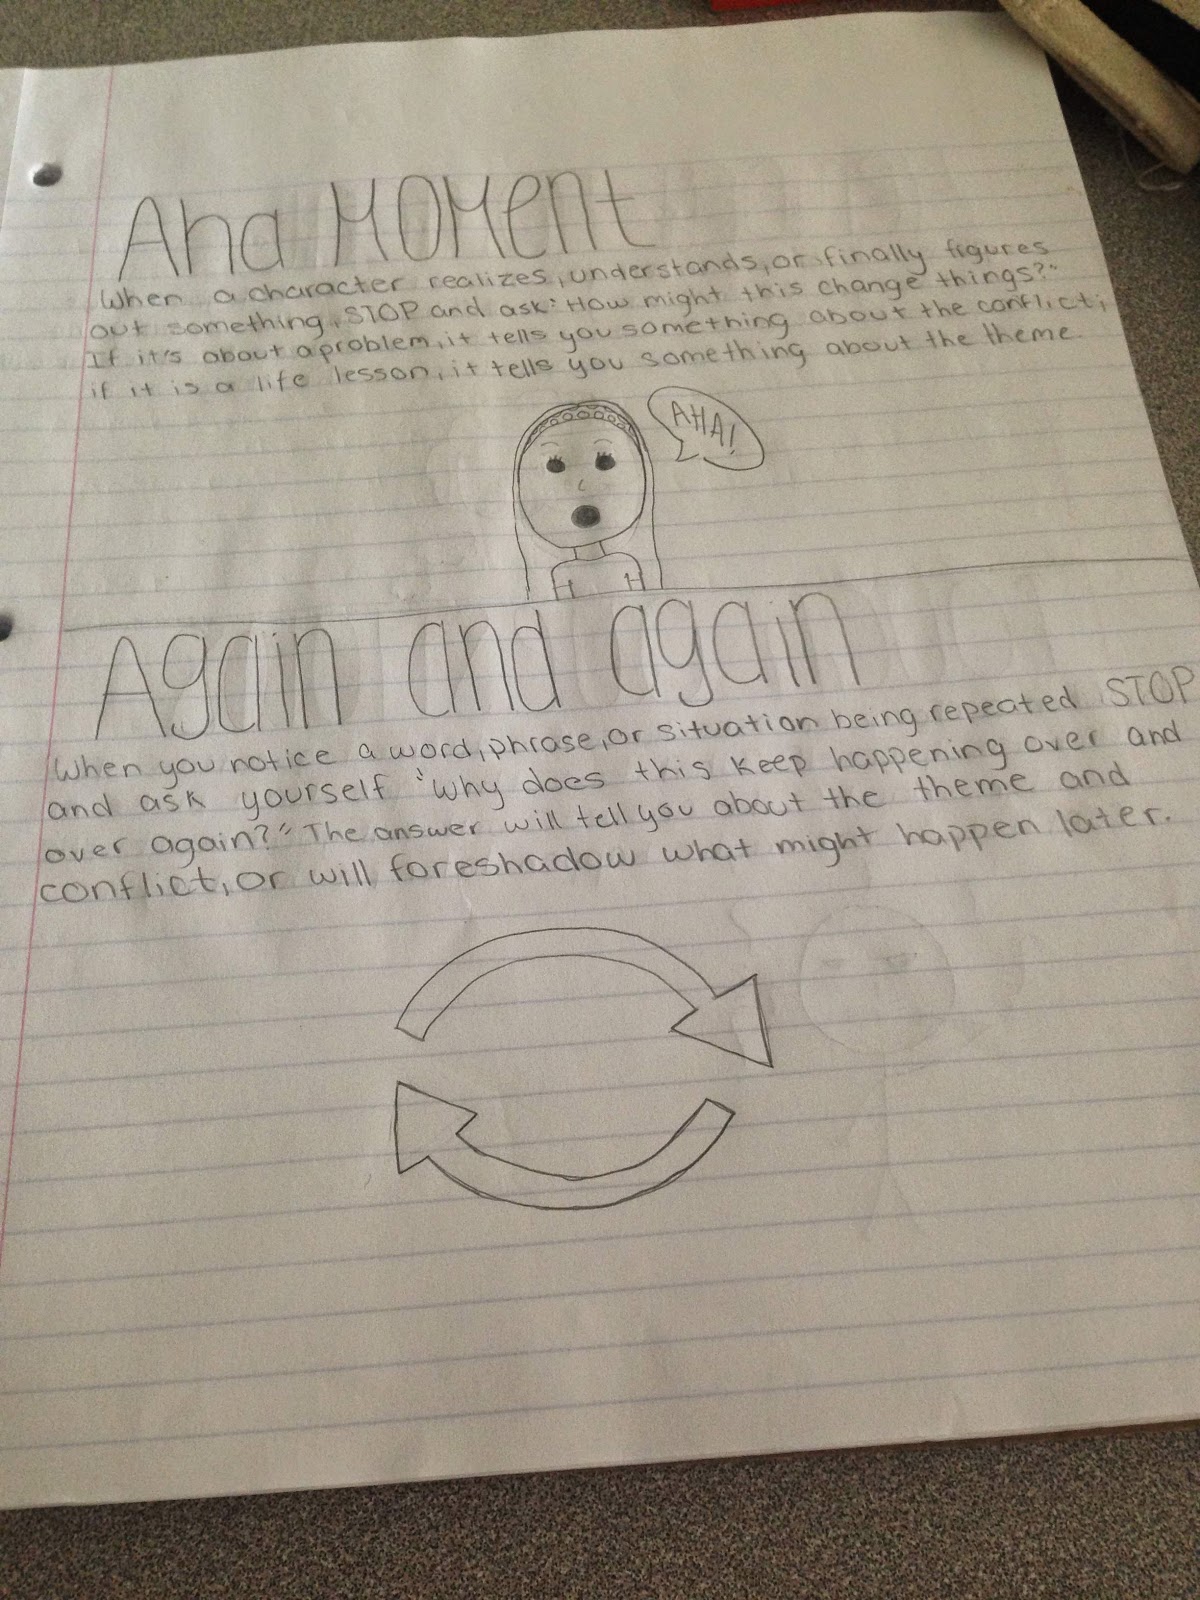 Aha MOMent
When a character realizes, understands, or finally figures
out something, STOP and ask: How might this change things?"
If it's about a problem, it tells you something about the conflict;
if it is a life lesson, it tells you something about the theme.
AHA!
Again and again
When you notice a word, phrase, or situation being repeated STOP
and ask yourself "Why does this keep happening over and
over again?" The answer will tell you about the theme and
conflict, or will foreshadow what might happen later.